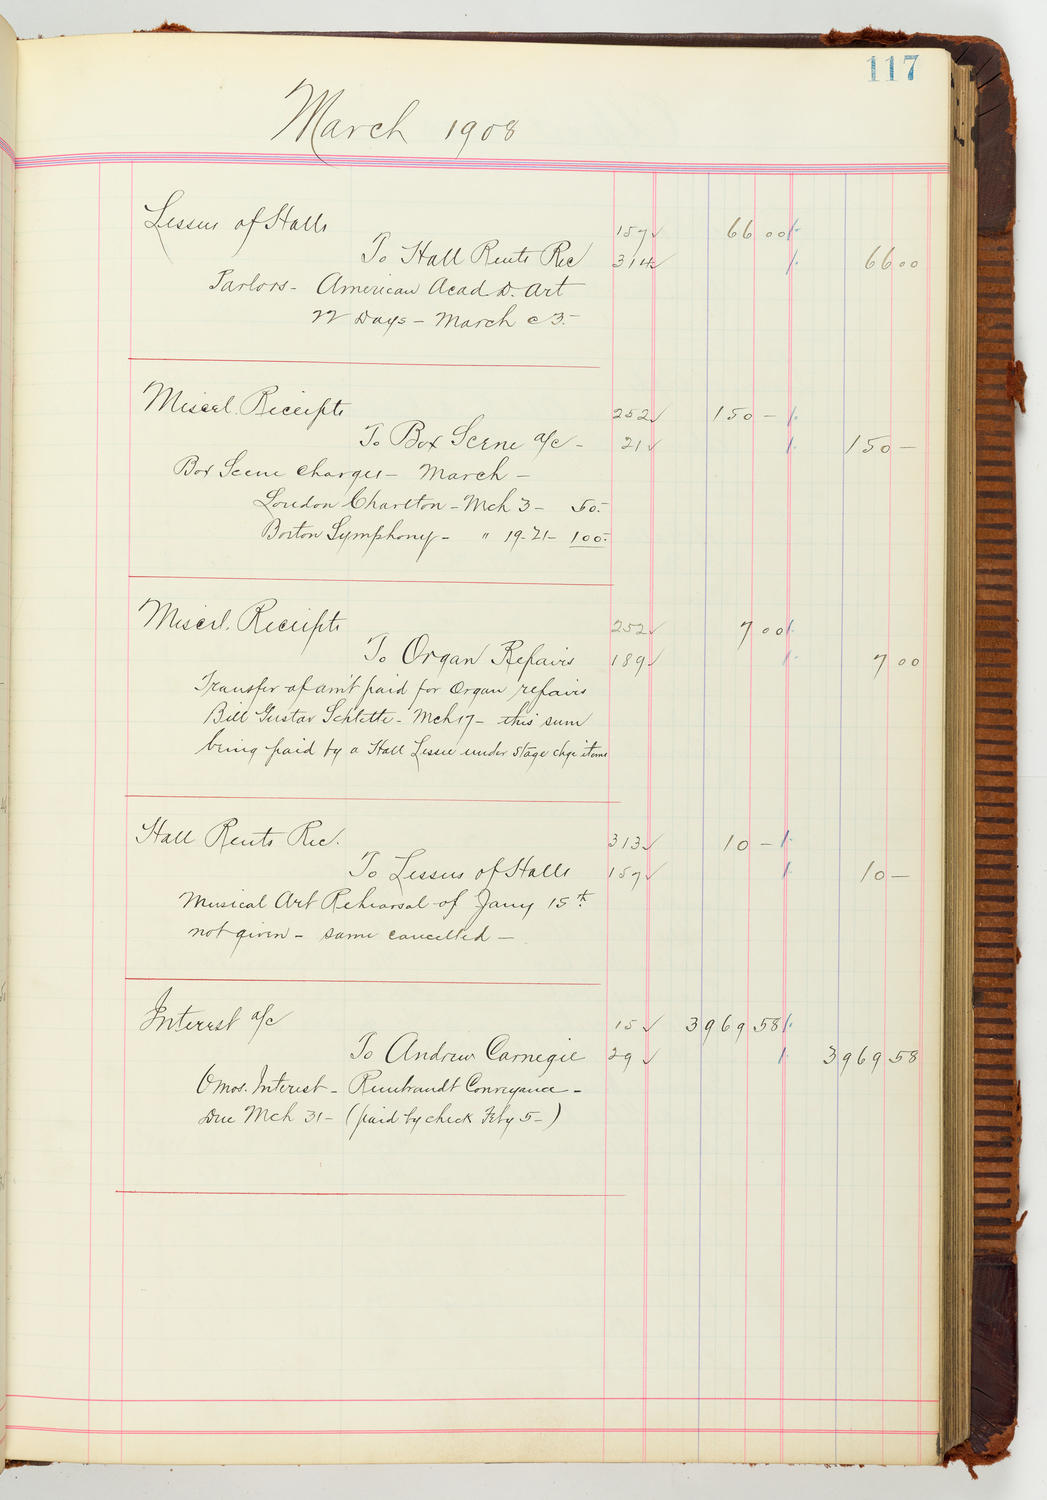 117
March 1908
Lessees of Halls 157✓ 66 00
To Hall Rents Rec 314✓ 66 00
Parlors - American Acad D. Art
22 Days - March @ 3.-
Miscel. Receipts 252✓ 150 -
To Box Scene a/c - 21✓ 150 -
Box Scene Charges - March -
Loudon Charlton - Mch 3 - 50.-
Boston Symphony - " 19-21 - 100.-
Miscel. Receipts 252✓ 7 00
To Organ Repairs 189✓ 7 00
Transfer of am't paid for Organ repairs
Bill Gustav Schlette - Mch 17 - this sum
being paid by a Hall Lessee under Stage chge items
Hall Rents Rec. 313✓ 10 -
To Lessees of Halls 157✓ 10 -
Musical Art Rehearsal of Jany 15th
not given - same cancelled -
Interest a/c 15✓ 3969 58
To Andrew Carnegie 29✓ 3969 58
6 mos. Interest - Rembrandt Conveyance -
Due Mch 31 - (paid by check Feby 5 -)